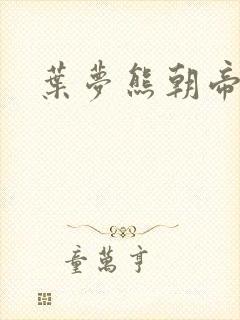 葉夢熊朝帝
童萬亨